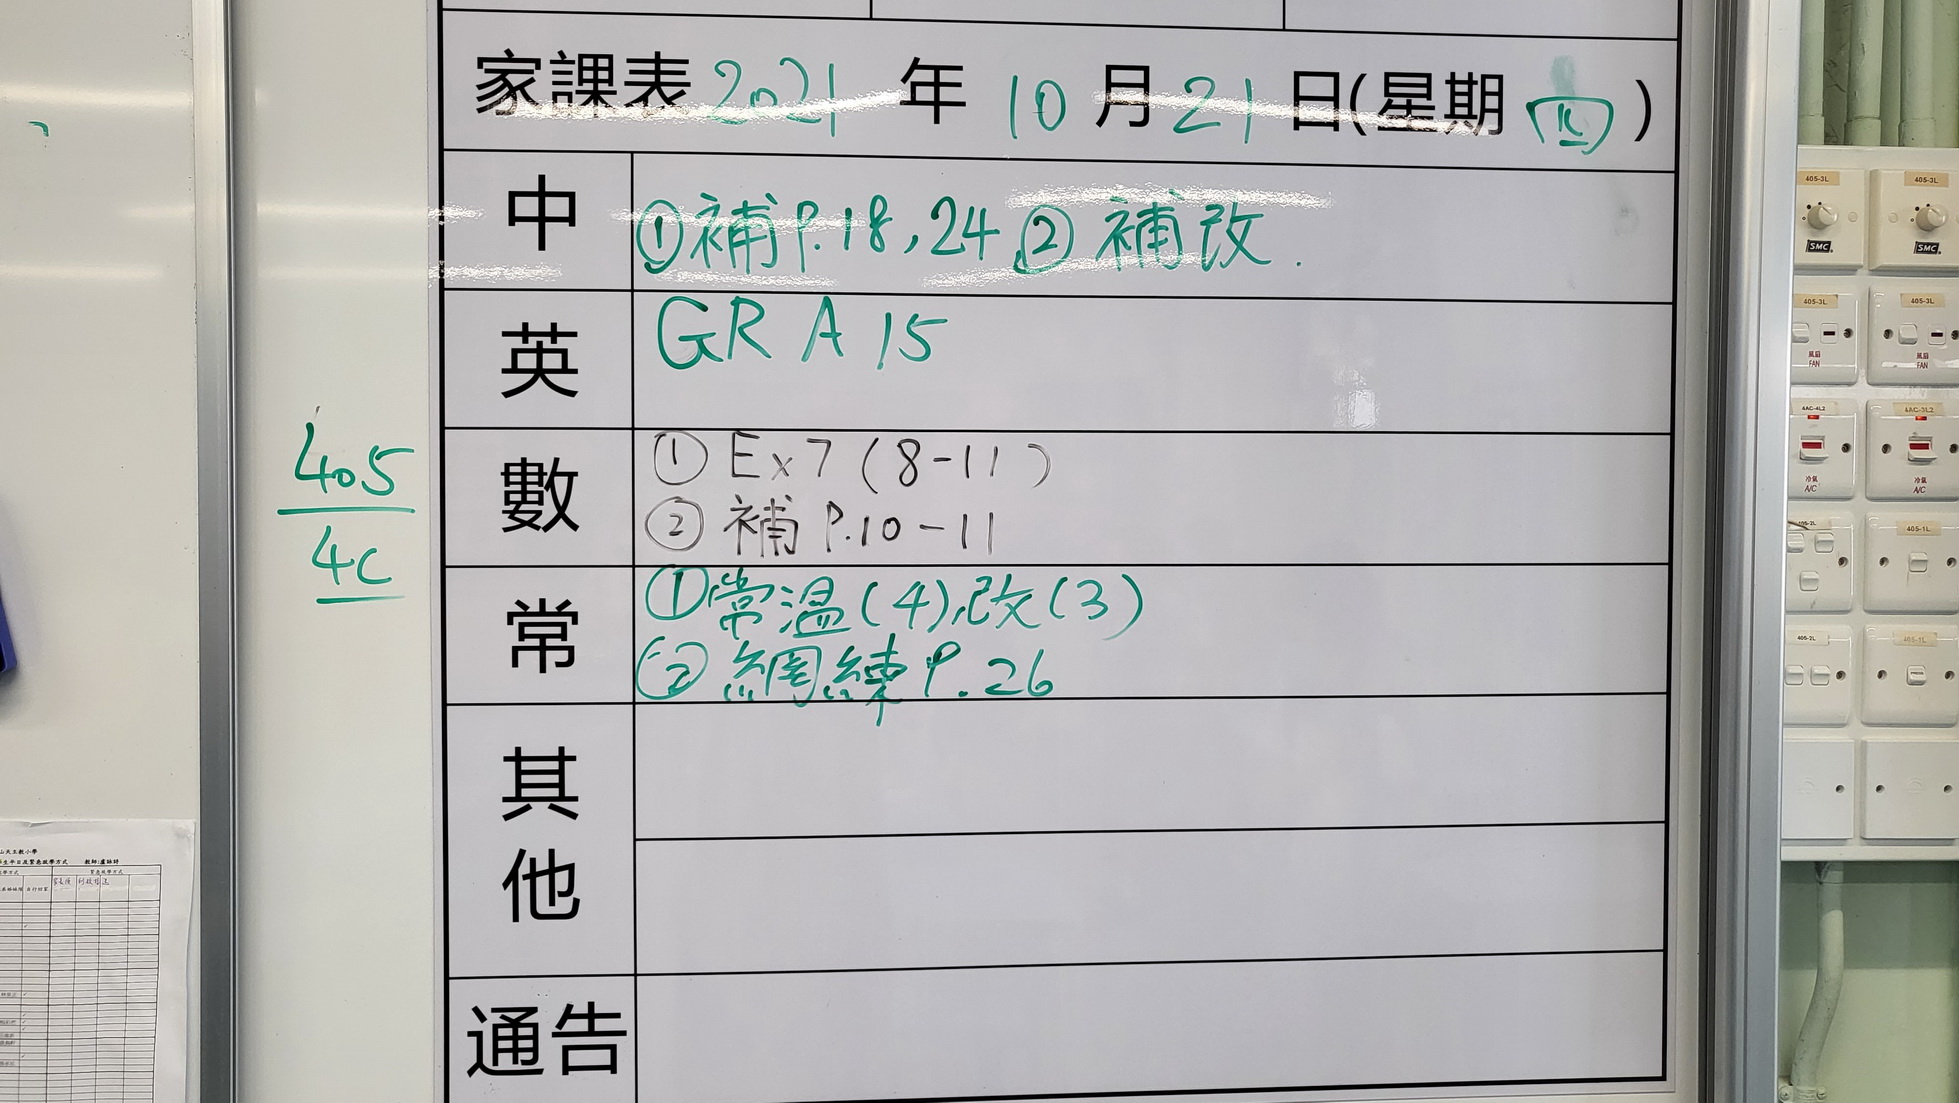 家課表 2021 年 10 月 21 日(星期 四)
中
①補P.18,24 ②補改.
英
GR A 15
數
① Ex7 (8-11)
② 補 P.10-11
常
①常溫(4),改(3)
② 網練 P.26
其他
通告
405
4C
405-3L
405-3L
SMC
SMC
405-3L
405-3L
風扇
FAN
風扇
FAN
4AC-4L2
4AC-3L2
冷氣
A/C
冷氣
A/C
405-2L
405-1L
405-2L
405-1L